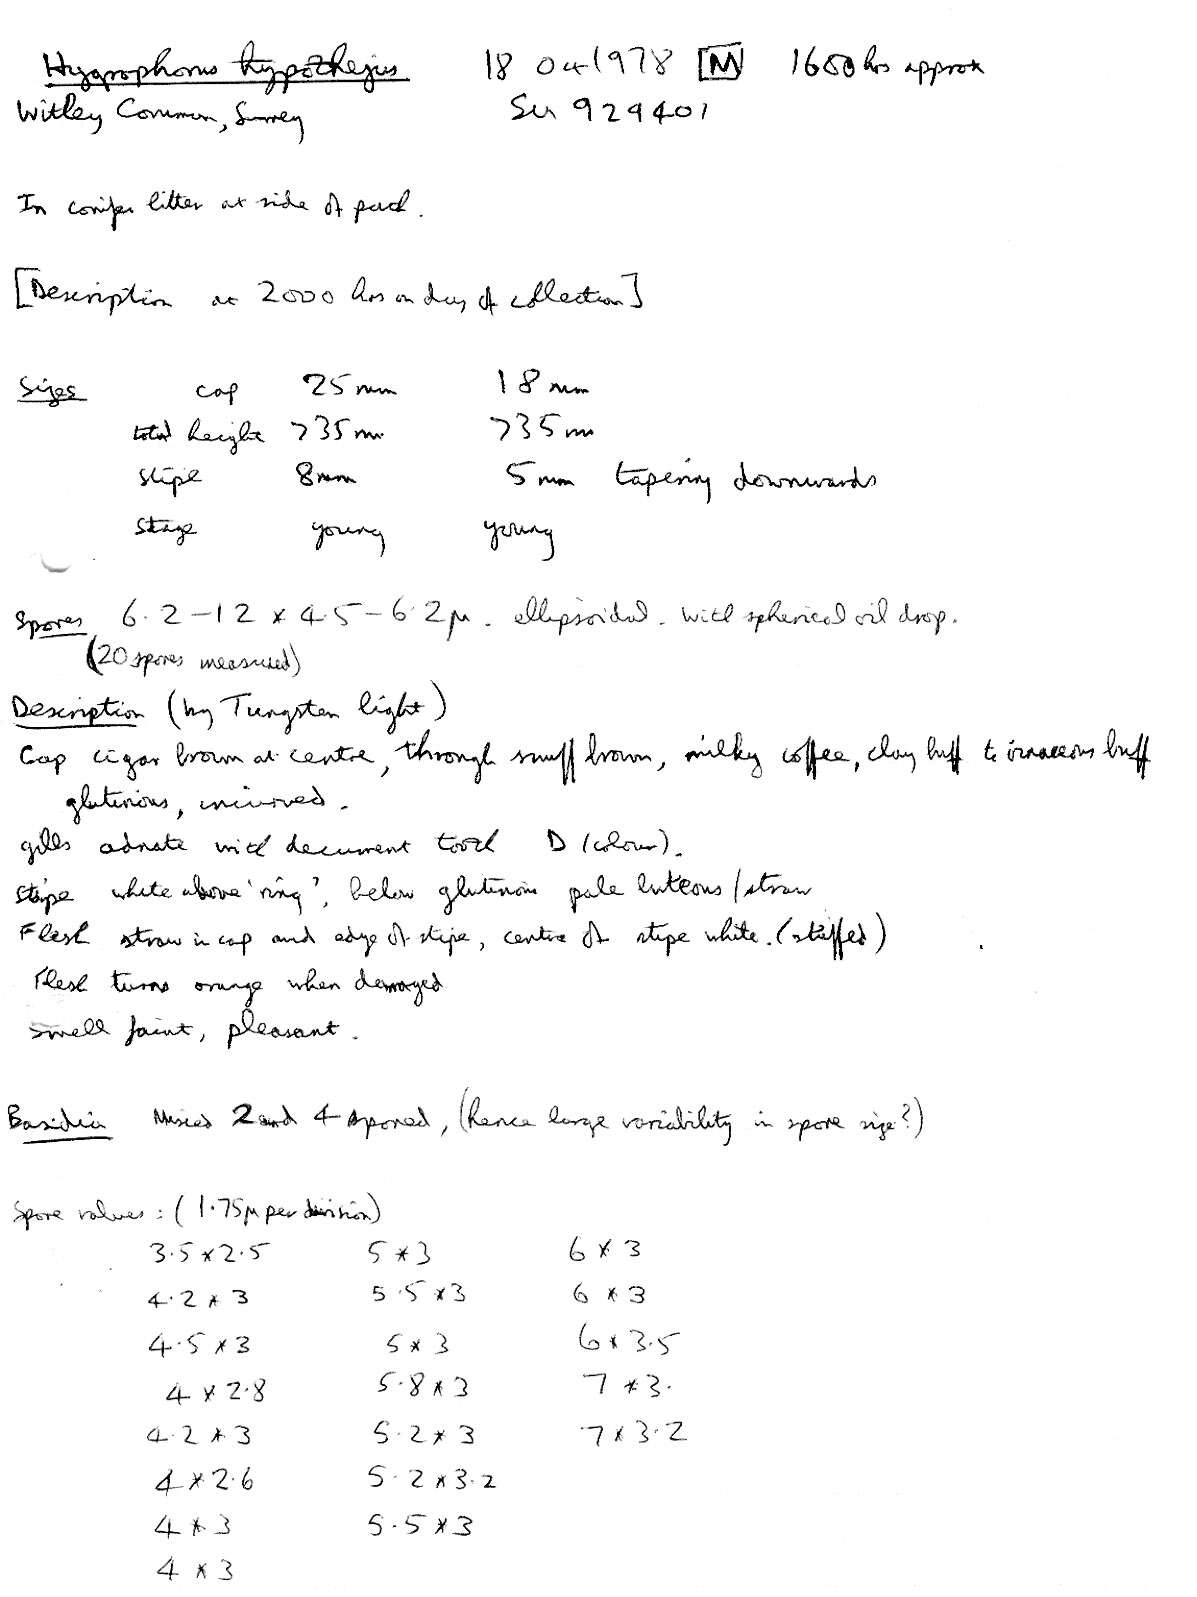 Hygrophorus hypothejus 18 04 1978 [M] 1600 hrs approx
Witley Common, Surrey SU 929401
In conifer litter at side of path.
[Description at 2000 hrs on day of collection]
Sizes cap 25mm 18mm
total height >35mm >35mm
stipe 8mm 5mm tapering downwards
stage young young
Spores 6.2-12 × 4.5-6.2μ. ellipsoidal. with spherical oil drop.
(20 spores measured)
Description (by Tungsten light)
Cap cigar brown at centre, through snuff brown, milky coffee, clay buff to vinaceous buff
glutinous, incurved.
gills adnate with decurrent tooth D (colour).
stipe white above 'ring', below glutinous pale luteous/straw
Flesh straw in cap and edge of stipe, centre of stipe white. (stuffed)
Flesh turns orange when damaged
smell faint, pleasant.
Basidia Mixed 2 and 4 spored, (hence large variability in spore size?)
Spore values: (1.75μ per division)
3.5 × 2.5 5 × 3 6 × 3
4.2 × 3 5.5 × 3 6 × 3
4.5 × 3 5 × 3 6 × 3.5
4 × 2.8 5.8 × 3 7 × 3.
4.2 × 3 5.2 × 3 7 × 3.2
4 × 2.6 5.2 × 3.2
4 × 3 5.5 × 3
4 × 3